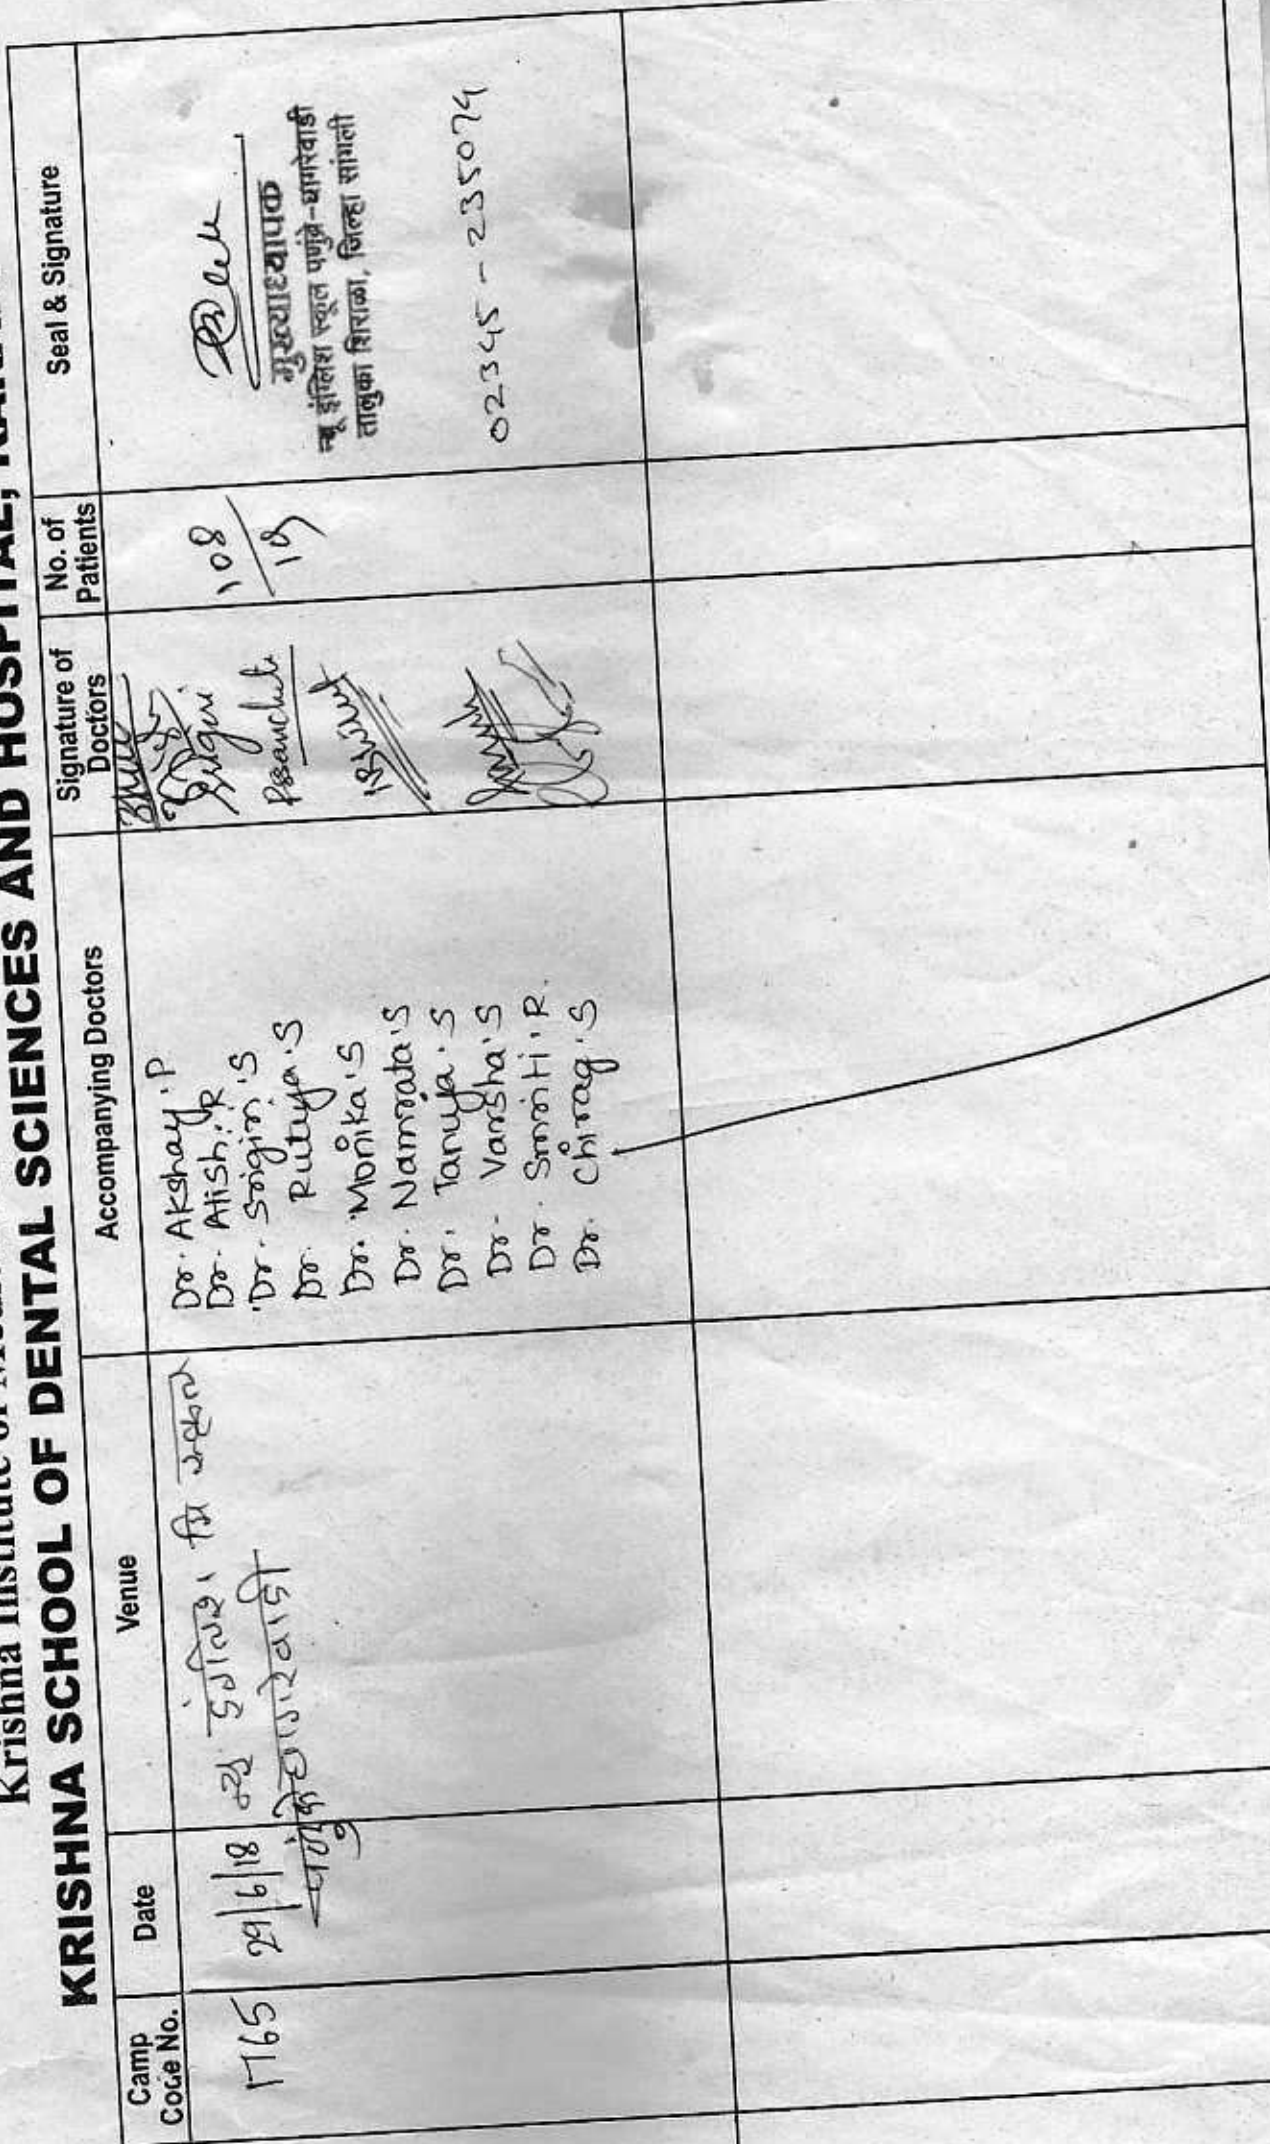 Krishna Institute of
KRISHNA SCHOOL OF DENTAL SCIENCES AND HOSPITAL,
Camp Code No.
Date
Venue
Accompanying Doctors
Signature of Doctors
No. of Patients
Seal & Signature
1765
29/6/18
न्यु इंग्लिश मि स्कूल
पणुंब्रे घागरेवाडी
Dr. Akshay.P
Dr. Atish.R
Dr. Srigiri.S
Dr. Rutuja.S
Dr. Monika.S
Dr. Namrata.S
Dr. Tanuja.S
Dr. Varsha.S
Dr. Smriti.R.
Dr. Chirag.S
108/19
मुख्याध्यापक
न्यू इंग्लिश स्कूल पणुंब्रे-घागरेवाडी
तालुका शिराळा, जिल्हा सांगली
02345-235074